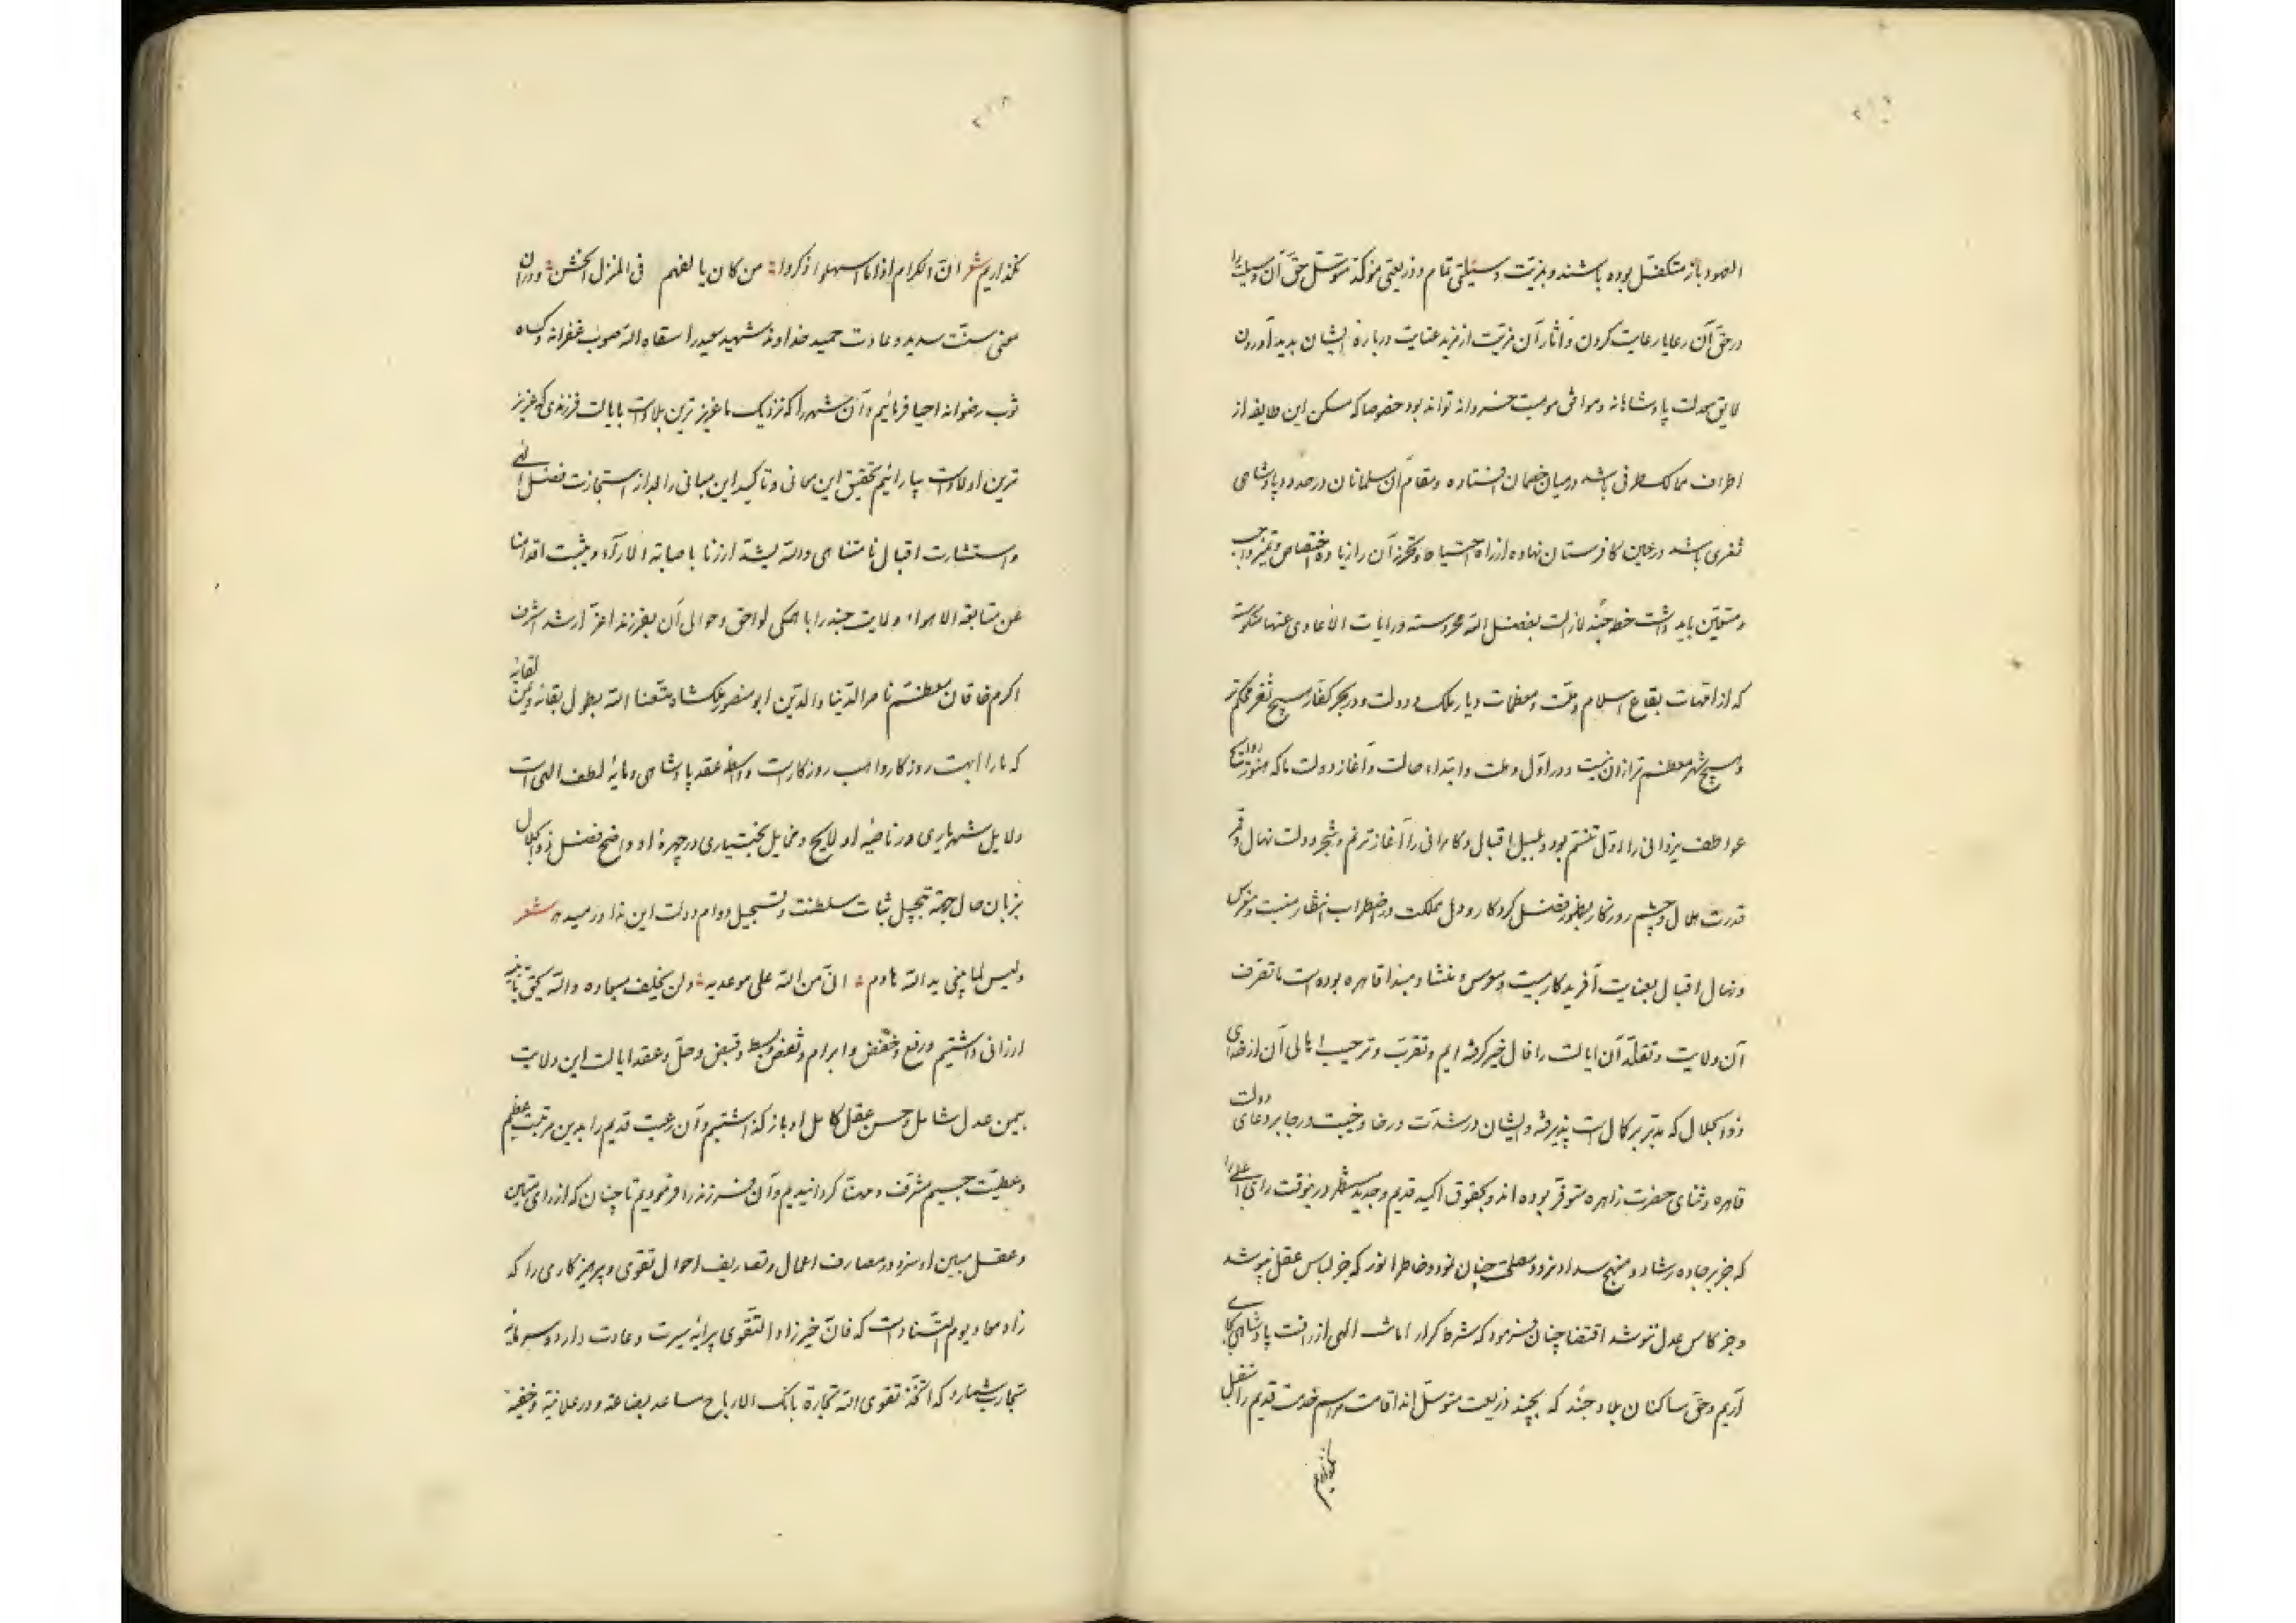 الصور باز متکفل بوده باشند و بمزیت وسیلتی تمام و ذریعتی مؤکد متوسل حق آن وسیلت را
در حق آن رعایا رعایت کردن و آثار آن مزیت از مزید عنایت در باره ایشان بدید آوردن
لایق معدلت پادشاهانه و موافق موهبت خسروانه تواند بود خصوصا که مسکن این طایفه از
اطراف ممالک طرفی باشد در میان خصمان افتاده و مقام آن مسلمانان در حدود پادشاهی
ثغری باشد در عین کافرستان نهاده از راه احتیاط و تحرز آن را زیاده اختصاص و تمیز واجب
و متعین باید داشت خطه جند لازالت بفضل الله محروسه و رایات الاعادی عنها منکوسه
که از امهات بقاع اسلام و ملت و معظمات دیار ملک و دولت و در بحر کفار هیچ ثغر محکم تر
و هیچ شهر معظم تر از آن نیست و در اول وهلت و ابتداء حالت و آغاز دولت ما که هنوز روایح
عواطف یزدانی را اول تنسم بود و بلبل اقبال و کامرانی را آغاز ترنم و شجر دولت نهال و قمر
قدرت هلال و چشم روزگار بظهور فضل کردگار و دل مملکت در اضطراب انتظار منبت و مغرس
و نهال اقبال بعنایت آفریدگار بیت و مؤسس منشا و مبدا قاهره بوده است ما تصرف
آن ولایت و تقلد آن ایالت را فال خیر گرفته ایم و تقرب و ترحیب اهالی آن از خدای
ذوالجلال که مدبر بر کمال است پذیرفته و ایشان در شدت و رخا و خیبت و رجا بر دعای دولت
قاهره و ثنای حضرت زاهره متوفر بوده اند و بحقوق اکید قدیم و جدید مستظهر درین وقت رای اعلی را
که جز بر جاده رشاد و منهج سداد نرود و مصلحت چنان نمود و خاطر انور که جز لباس عقل نپوشد
و جز کاس عدل ننوشد اقتضا چنان فرمود که شرط کرار امانت الهی از رافت پادشاهی بجای
آریم و حق ساکنان بلاد جند که بچند ذریعت متوسل اند اقامت مراسم خدمت قدیم را مهمل
نگذاریم
نگذاریم شعر ان الکرام اذا ما اسهلوا ذکروا من کان یالفهم فی المنزل الخشن و در آن
معنی سنت سدید و عادت حمید خداوند شهید سعید را سقاه الله صوب غفرانه و کساه
ثوب رضوانه احیا فرمائیم و آن شهر را که نزدیک ما عزیز ترین بلادست بایالت فرزندی که عزیز
ترین اولادست بیارائیم تحقیق این معانی و تاکید این مبانی را بعد از استجازت فضل الهی
و استشارت اقبال نامتناهی والله یشد ازرنا باصابة الاراء و یثبت اقدامنا
عن متابعة الاهواء ولایت جند را با همگی لواحق و حوالی آن بفرزند اعز ارشد اشرف
اکرم خاقان معظم ناصر الدنیا والدین ابو منصور ملکشاه متعنا الله بطول بقائه و یمن لقائه
که ما را اهبت روزگار و اهب روزگارست و واسطه عقد پادشاهی و مایه لطف الهی است
دلایل شهریاری در ناصیه او لایح و مخایل بختیاری در چهره او واضح فضل ذو الجلال
بزبان حال حجة تبجیل ثبات سلطنت و تسجیل دوام دولت این ندا در میدهد شعر
ولیس لما یبنی ید الله هادم ان من الله علی موعدیه و لن یخلف میعاده والله یحق
ارزانی داشتیم و رفع و خفض و ابرام و نقض و بسط و قبض و حل و عقد ایالت این ولایت
بیمن عدل شامل و حسن عقل کامل او باز گذاشتیم و آن رعیت قدیم را بدین مرتبت عظیم
و عطیت جسیم مشرف و مهنا گردانیدیم و آن فرزند را فرمودیم تا چنان که از رای متین
و عقل مبین او سزد در مصارف اعمال و تصاریف احوال تقوی و پرهیزکاری را که
زاد معاد و یوم التناد است که فان خیر زاد التقوی پیرایه سیرت و عادت دارد و سرمایه
تجارت شمارد که اتخذ تقوی الله تجارة یاتک الارباح ساعد بضاعة و در علانیة و خفیه